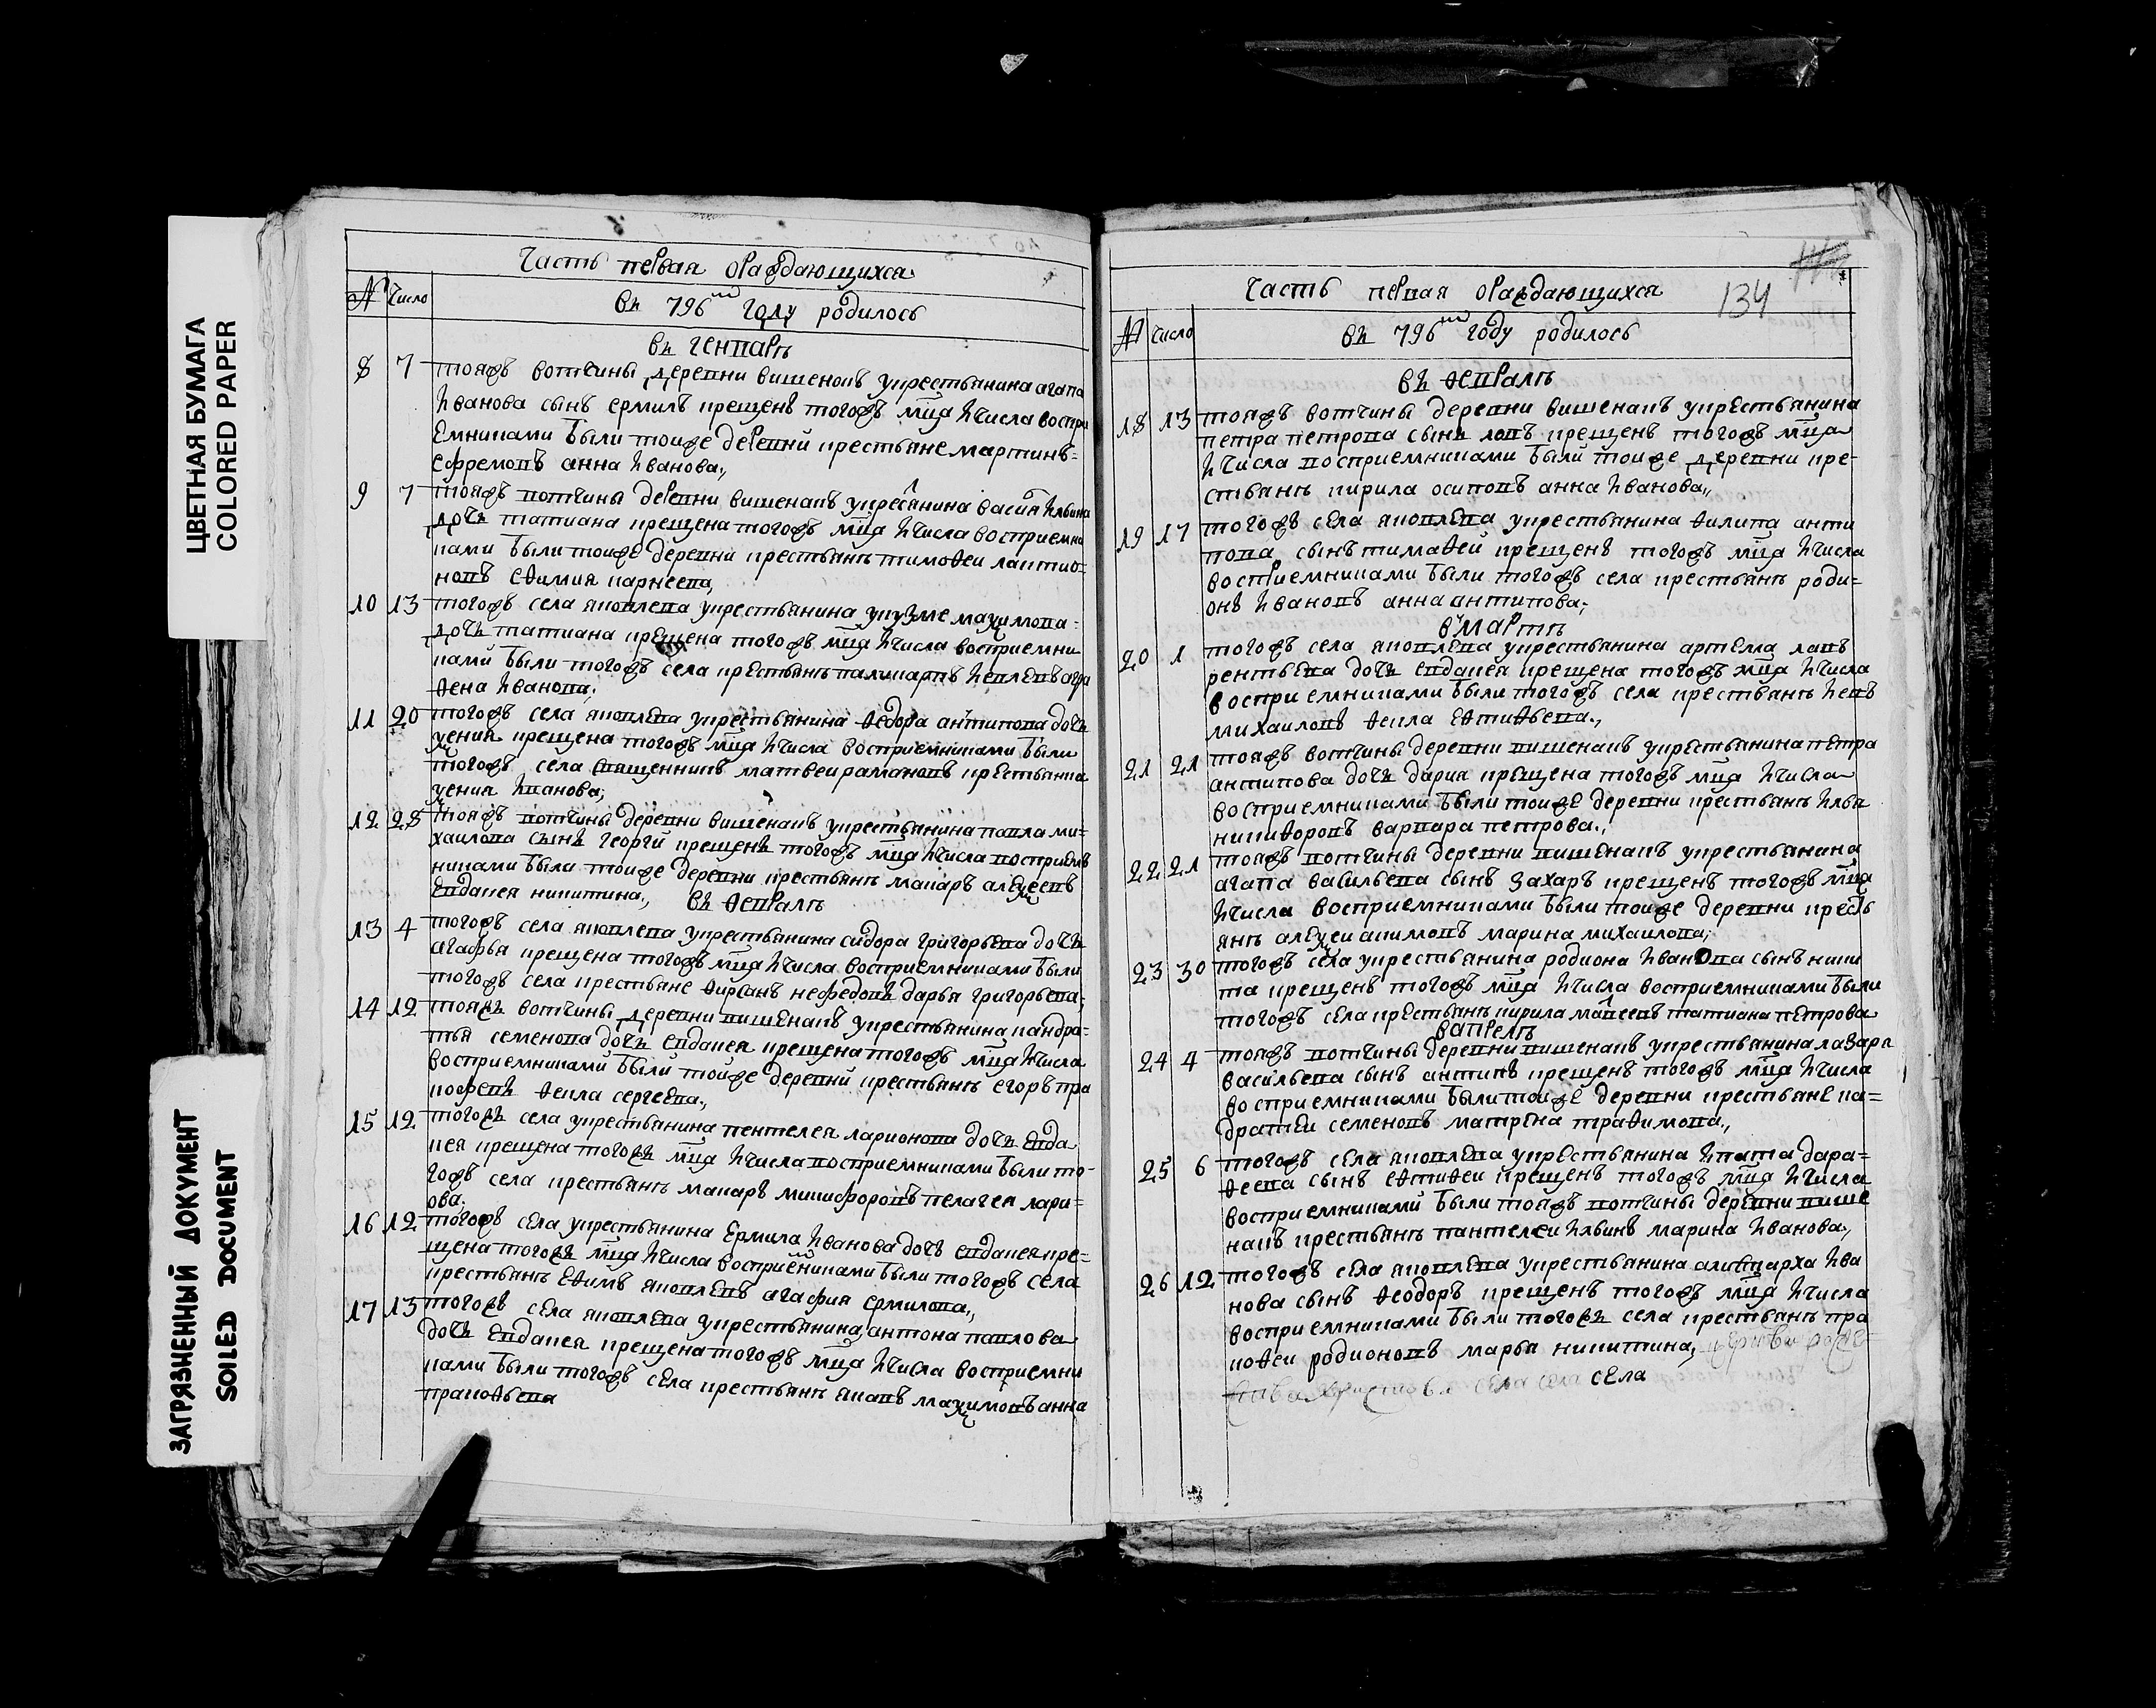 ЦВЕТНАЯ БУМАГА
COLORED PAPER
ЗАГРЯЗНЕННЫЙ ДОКУМЕНТ
SOILED DOCUMENT
Часть первая ораждающихся
№ Число
въ 796 году родилось
въ генваре
8 7 тояжъ вотчины деревни вишенокъ укрестьянина агапа
иванова сынъ ермилъ крещенъ тогожъ мца ичисла воспри
емниками были тоиже деревни крестьяне мартинъ=
ефремовъ анна иванова,,
9 7 тояжъ вотчины деревни вишенакъ укресянина васи ильина
дочь татиана крещена тогожъ мца ичисла восприемни
ками были тоиже деревни крестьянъ тимоѳеи лактио=
новъ еѳимия карнеева,
10 13 тогожъ села яковлева укрестьянина укузме маѯимова=
дочь татиана крещена тогожъ мца ичисла восприемни
ками были тогожъ села крестьянъ паликарпъ агра
ѳена иванова;
11 20 тогожъ села яковлева укрестьянина ѳедора антипова дочь
ѯения крещена тогожъ мца ичисла восприемниками были
тогожъ села священникъ матвеи рамановъ крестьянка
ѯения иванова;
12 28 тояжъ вотчины деревни вишенакъ укрестьянина павла ми=
хаилова сынъ георги крещенъ тогожъ мца ичисла восприем
никами были тоиже деревни крестьянъ макаръ алеѯеевъ
евдакея никитина,, въ ѳеврале
13 4 тогожъ села яковлева укрестьянина сидора григорьева дочь
агафья крещена тогожъ мца ичисла восприемниками были
тогожъ села крестьяне ѳирсанъ нефедовъ дарья григорьева;
14 12 тояжъ вотчины деревни вишенакъ укрестьянина кандра=
тья семенова дочь евдакея крещена тогожъ мца ичисла
восприемниками были тоиже деревни крестьянъ егоръ пра
кофевъ ѳекла сергеева.,
15 12 тогожъ села укрестьянина пентелея ларионова дочь евда
кея крещена тогожъ мца ичисла восприемниками были то-
гожъ села крестьянъ макаръ микифоровъ пелагея лари=
ова.
16 12 тогожъ села укрестьянина ермила иванова дочь евдакея кре=
щена тогожъ мца ичисла восприемниками были тогожъ села
крестьянъ еѳимъ яковлевъ агафия ермилова,,
17 13 тогожъ села яковлева укрестьянина антона павлова
дочь евдакея крещена тогожъ мца ичисла восприемни
ками были тогожъ села крестьянъ якавъ маѯимовъ анна
пракоѳьева
134
Часть первая ораждающихся
№ число
въ 796 году родилось
въ ѳеврале
18 13 тояжъ вотчины деревни вишенакъ укрестьянина
петра петрова сынъ левъ крещенъ тогожъ мца
ичисла восприемниками были тоиже деревни кре-
стьянъ кирила осиповъ анна иванова,,
19 17 тогожъ села яковлева укрестьянина ѳилипа анти
пова сынъ тимаѳеи крещенъ тогожъ мца ичисла
восприемниками были тогожъ села крестьянъ роди=
онъ ивановъ анна антипова;
въ марте
20 1 тогожъ села яковлева укрестьянина артема лавъ
рентьева дочь евдакея крещена тогожъ мца ичисла
восприемниками были тогожъ села крестьянъ
михаиловъ ѳекла еѳтиѳьева.,
21 21 тояжъ вотчины деревни вишенакъ укрестьянина петра
антипова дочь дария крещена тогожъ мца ичисла
восприемниками были тоиже деревни крестьянъ илья
никиѳоровъ варвара петрова.,
22 21 тояжъ вотчины деревни вишенакъ укрестьянина
агапа васильева сынъ захаръ крещенъ тогожъ мца
ичисла восприемниками были тоиже деревни кресть
янъ алеѯеи акимовъ марина михаилова;
23 30 тогожъ села укрестьянина родиона иванова сынъ ники
та крещенъ тогожъ мца ичисла восприемниками были
тогожъ села крестьянъ кирила татиана петрова
вапреле
24 4 тояжъ вотчины деревни вишенакъ укрестьянина лазаря
васильева сынъ антипъ крещенъ тогожъ мца ичисла
восприемниками были тоиже деревни крестьяне ка=
дратеи семеновъ матрена траѳимова,,
25 6 тогожъ села яковлева укрестьянина ипата дара=
ѳеева сынъ еѳтиѳеи крещенъ тогожъ мца ичисла
восприемниками были тояжъ вотчины деревни више
накъ крестьянъ пантелеи ильинъ марина иванова,,
26 12 тогожъ села яковлева укрестьянина ива
нова сынъ ѳеодоръ крещенъ тогожъ мца ичисла
восприемниками были тогожъ села крестьянъ пра
коѳеи родионовъ марья никитина, церкви
села села села